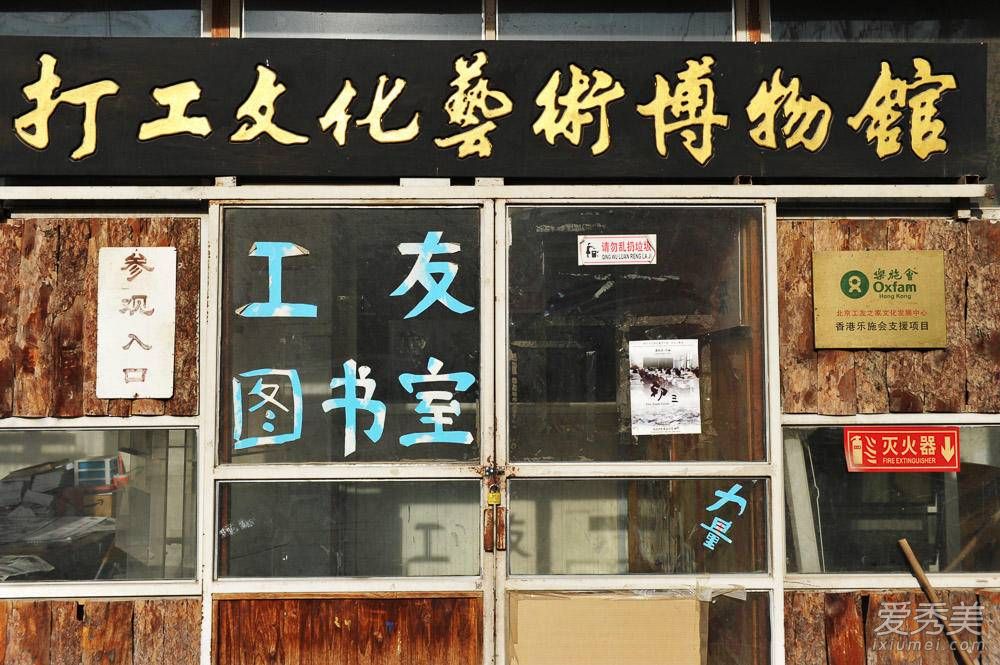 打工文化藝術博物館
参观入口
工友
图书室
请勿乱扔垃圾
QING WU LUAN RENG LA JI
樂施會
Oxfam
Hong Kong
北京工友之家文化发展中心
香港乐施会支援项目
灭火器
FIRE EXTINGUISHER
力量
爱秀美
ixiumei.com